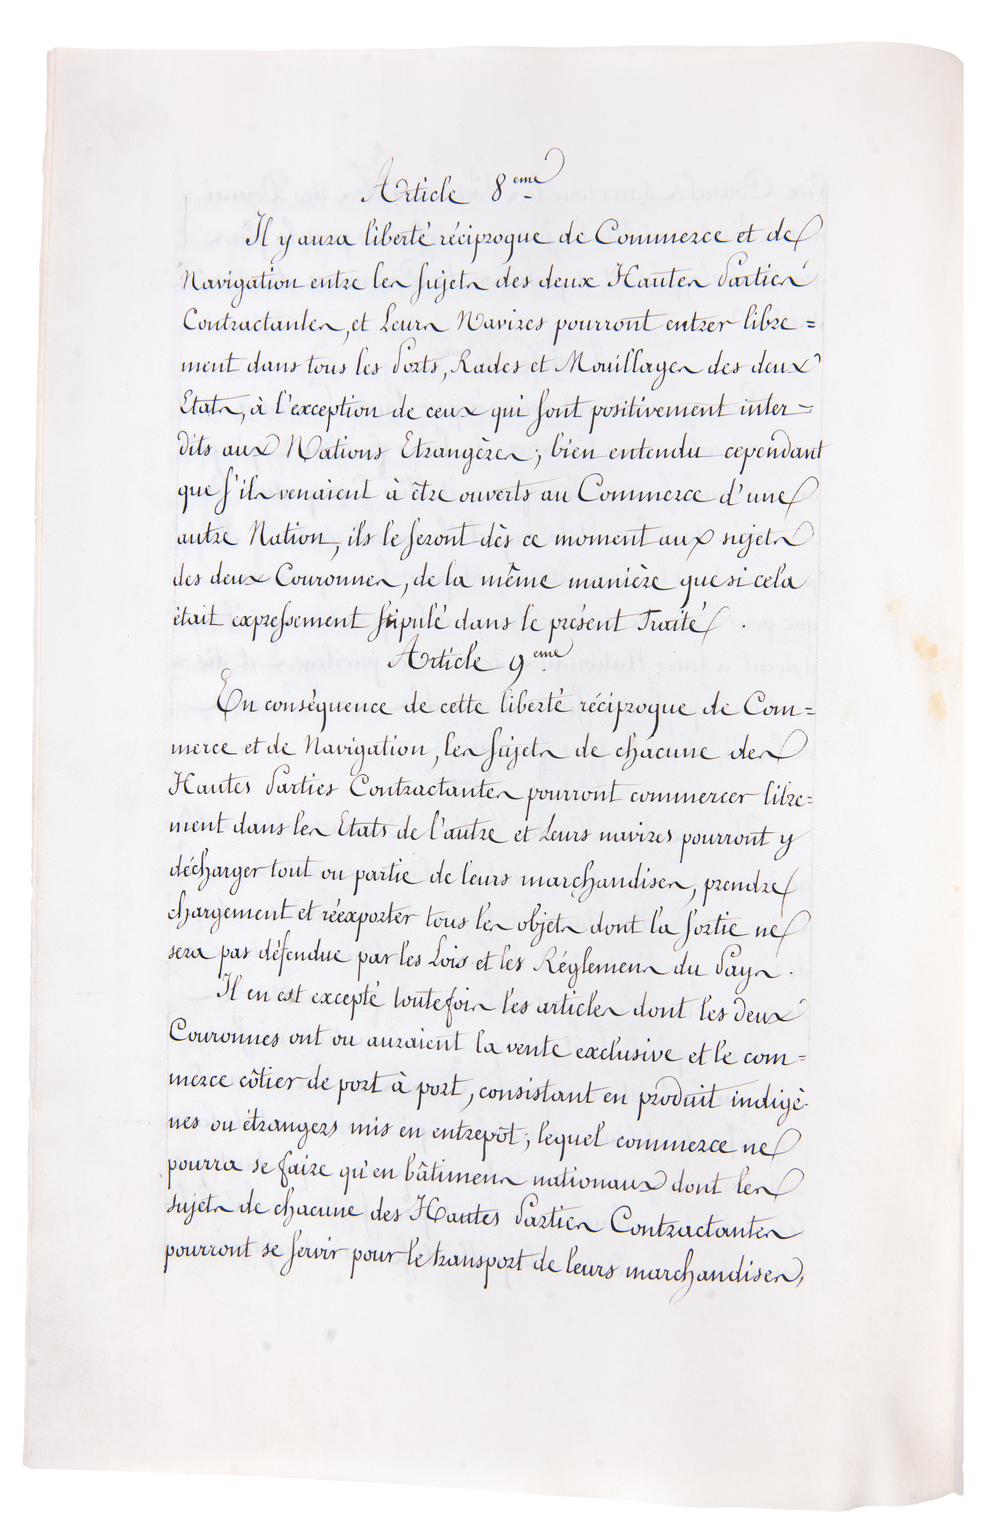 Article 8eme
Il y aura liberté réciproque de Commerce et de
Navigation entre les sujets des deux Hautes Parties
Contractantes, et leurs Navires pourront entrer libre=
ment dans tous les Ports, Rades et Mouillages des deux
Etats, à l'exception de ceux qui sont positivement inter=
dits aux Nations Etrangères; bien entendu cependant
que s'ils venaient à être ouverts au Commerce d'une
autre Nation, ils le seront dès ce moment aux sujets
des deux Couronnes, de la même manière que si cela
était expressement stipulé dans le présent Traité.
Article 9eme
En conséquence de cette liberté réciproque de Com=
merce et de Navigation, les sujets de chacune des
Hautes Parties Contractantes pourront commercer libre=
ment dans les Etats de l'autre et leurs navires pourront y
décharger tout ou partie de leurs marchandises, prendre
chargement et réexporter tous les objets dont la sortie ne
sera pas défendue par les Lois et les Réglemens du Pays.
Il en est excepté toutefois les articles dont les deux
Couronnes ont ou auraient la vente exclusive et le com=
merce côtier de port à port, consistant en produit indigè-
nes ou étrangers mis en entrepôt; lequel commerce ne
pourra se faire qu'en bâtimens nationaux dont les
sujets de chacune des Hautes Parties Contractantes
pourront se servir pour le transport de leurs marchandises,